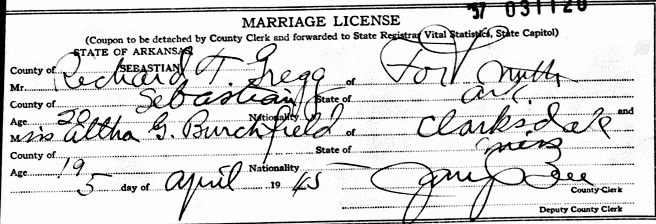 57 031120
MARRIAGE LICENSE
(Coupon to be detached by County Clerk and forwarded to State Registrar Vital Statistics, State Capitol)
STATE OF ARKANSAS
County of SEBASTIAN
Mr. Richard T. Gregg of Fort Smith
County of Sebastian State of Ark.
Age 20 Nationality and
Miss Altha G. Burchfield of Clarksdale
County of State of Miss
Age 19 Nationality
5 day of April 1945
County Clerk
Deputy County Clerk